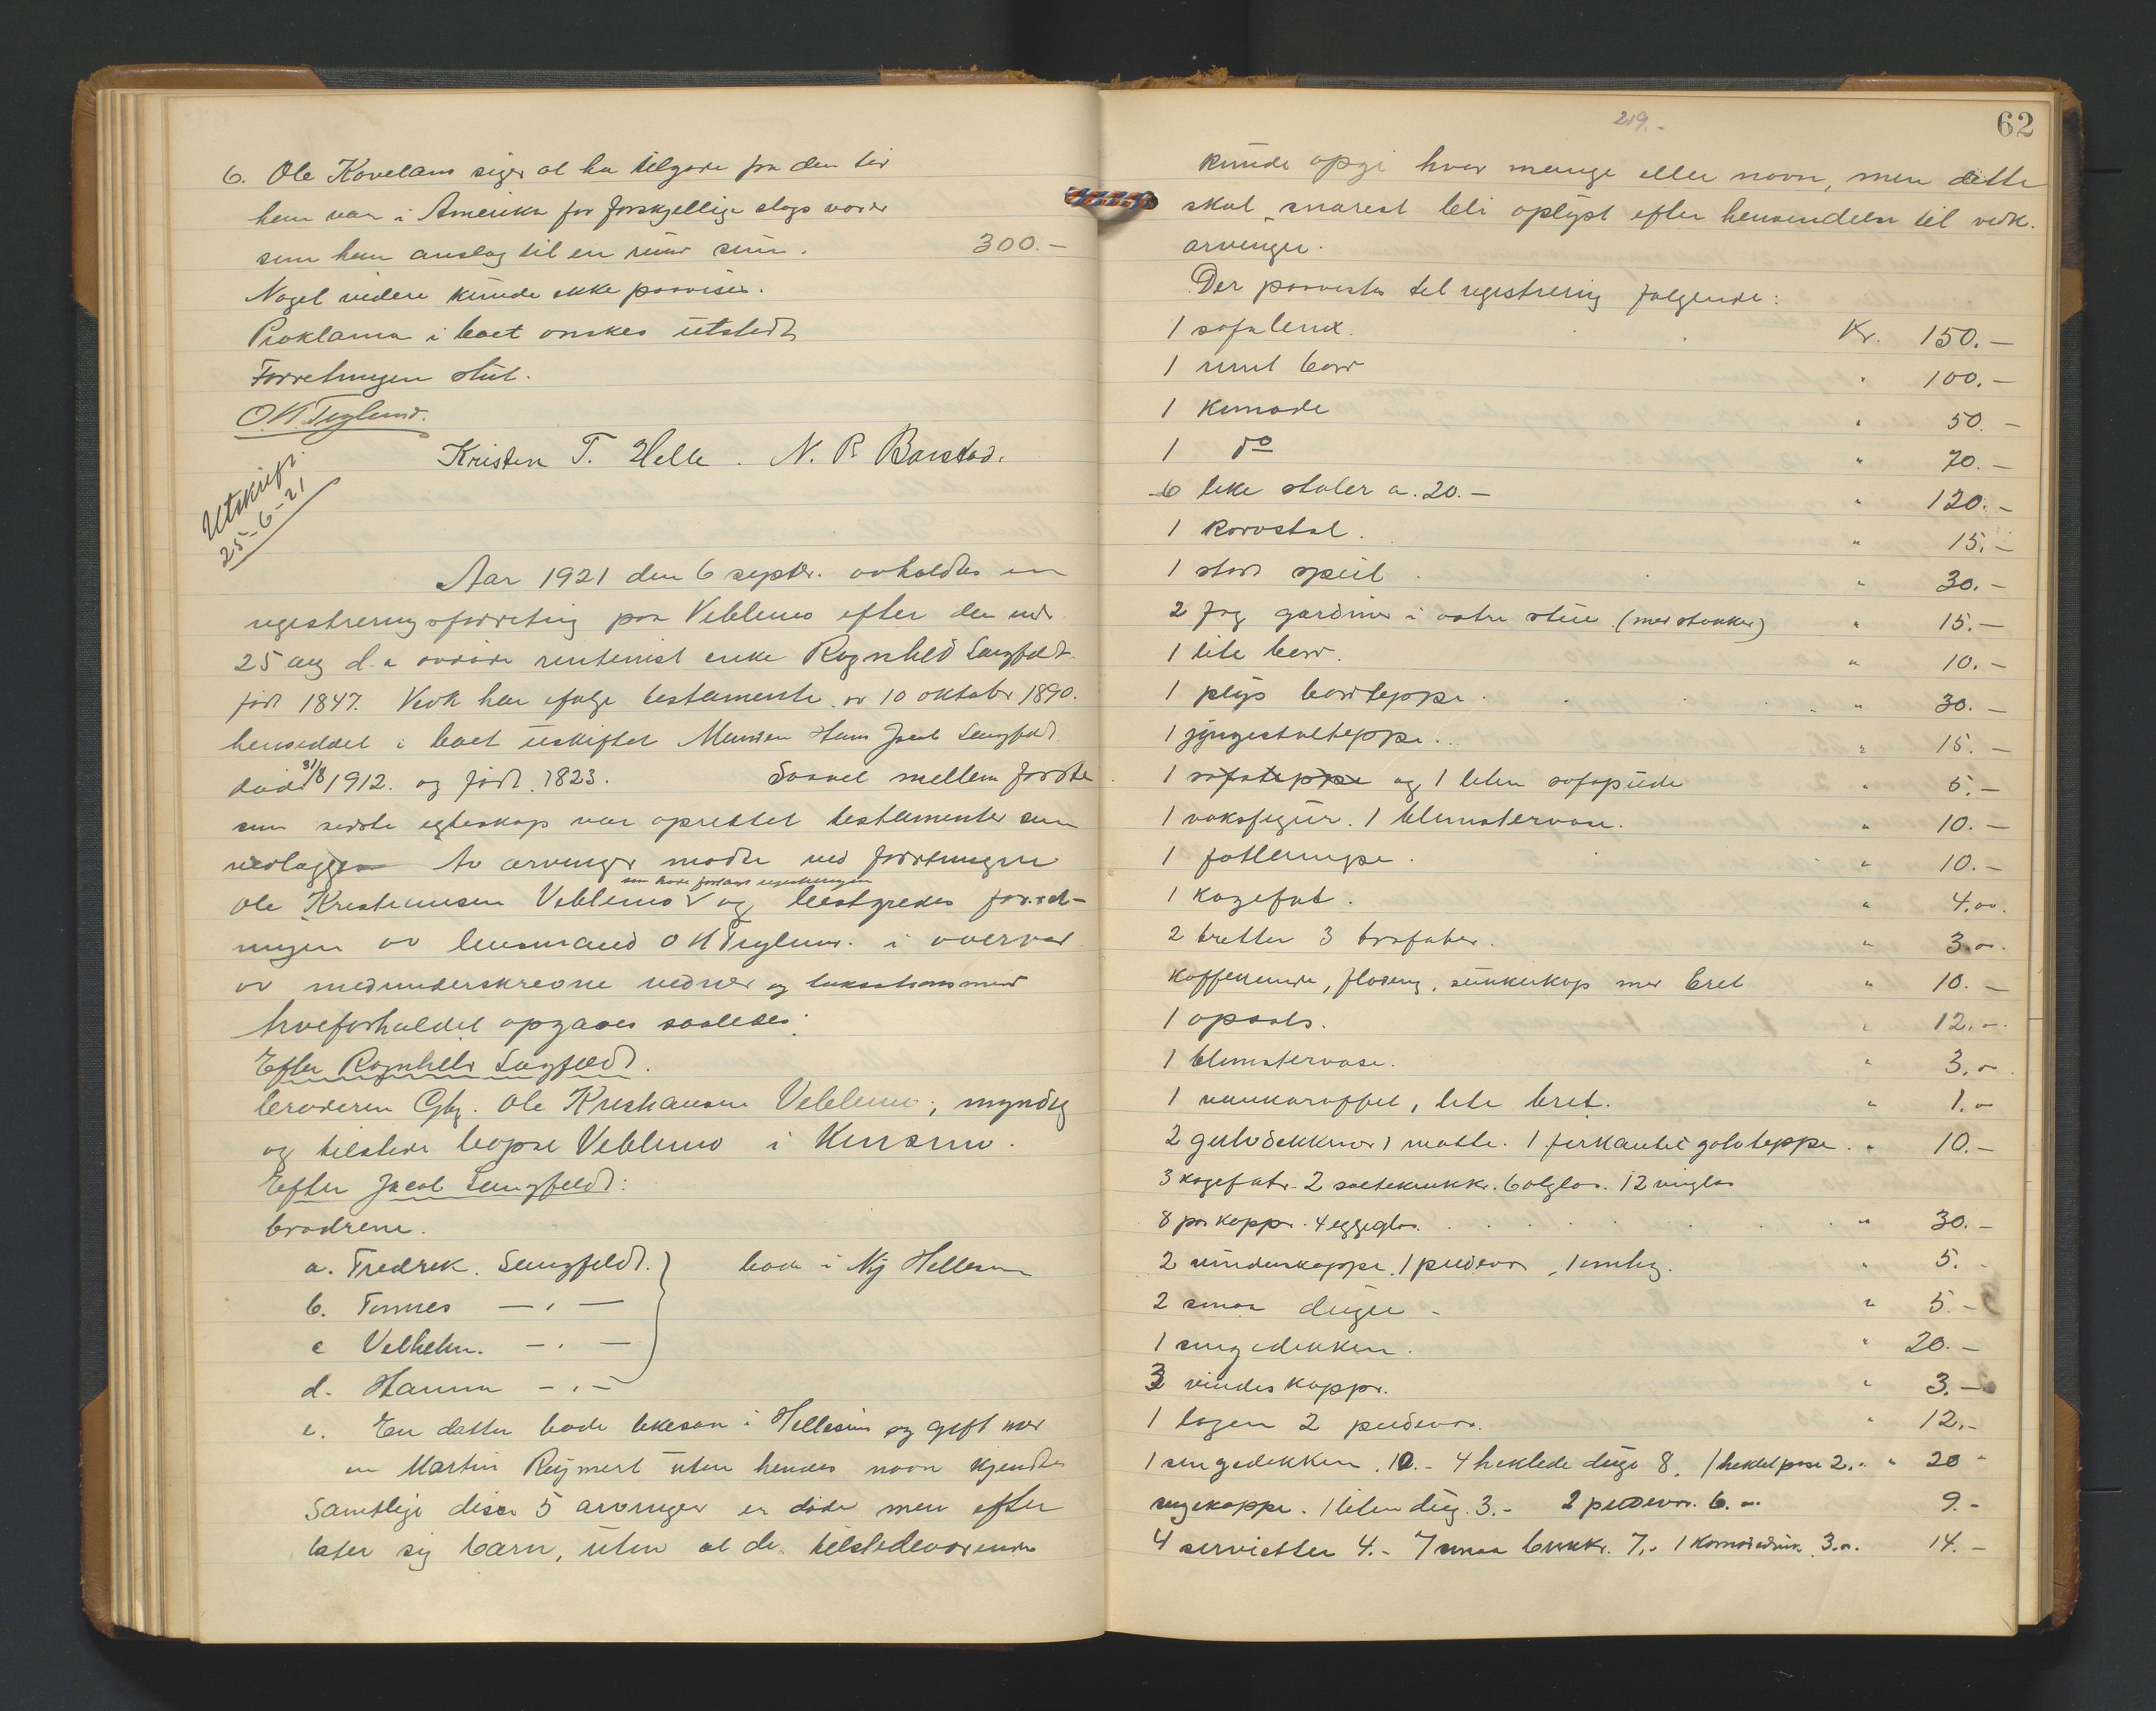 6. Ole Kovelans siger at ha tilgode fra den tid
han var i Amerika for forskjellige slags varer
som han anslog til en rund sum. 300.-
Noget videre kunde ikke paavises.
Proklama i boet ønskes utstedt
Forretningen slut.
O.N. Teglund.
Kristen T. Helle. N. R. Barstad.
Utskrift
25-6-21
Aar 1921 den 6 septbr. avholdtes en
registreringsforretning paa Veblemo efter den
25 aug d.a avdøde rentenist enke Ragnhild Langfeldt
født 1847. Vedk har ifølge testamente av 10 oktober 1890.
hensiddet i boet uskiftet Manden Hans Jacob Langfeldt
død 31/8 1912. og født. 1823. Saavel mellem første
som sidste egteskap var oprettet testamenter som
vedlægges Av arvinger møtte ved forretningen
som hadde forlangt registreringen
Ole Kristiansen Veblemo og bestyredes forret-
ningen av lensmand O N Teglund. i overvær
av medunderskrevne vidner og takstmænd
Arveforholdet opgaves saaledes:
Efter Ragnhild Langfeldt.
broderen Gbr. Ole Kristiansen Veblemo, myndig
og tilstede bopæl Veblemo i
Efter Jacob Langfeldt:
brødrene.
a. Fredrik. Langfeldt. } bode i Ny Hellesun
b. Tønnes — " —
c Vilhelm. — " —
d. Hanna — " —
e. En datter bode likesaa i Hellesun og gift med
en Martin Reymert uten hendes navn kjendtes
Samtlige disse 5 arvinger er døde men efter
later sig barn, uten at de tilstedeværende
219.-
62
kunde opgi hvor mange eller navn, men dette
skal snarest bli oplyst efter henvendelse til vedk.
arvinger.
Der paavistes til registrering følgende:
1 sofabenk. Kr. 150.-
1 rundt bord " 100.-
1 Komode " 50.-
1 do " 70.-
6 like stoler a. 20.- " 120.-
1 kurvstol. " 15.-
1 stort speil " 30.-
2 fag gardiner i østre stue (med stokker) " 15.-
1 lite bord. " 10.-
1 plys bordteppe. " 30.-
1 gyngestolteppe. " 15.-
1 sofateppe og 1 liten sofapude " 5.-
1 voksfigur. 1 blomstervase. " 10.-
1 fotlampe. " 10.-
1 kagefat. " 4.00.
2 bretter 3 brøfater. " 3.00.
Kaffekande, fløtemg. sukkerkop med bret " 10.-
1 opsats. " 12.-
1 blomstervase. " 3.00
1 vankaraffel, lite bret. " 1.00
2 gulvdekkener 1 matte. 1 firkantet golvteppe. " 10.-
3 kagefat. 2 saltekrukker. 6 ølglas. 12 vinglas
8 par kopper. 4 eggeglas. " 30.-
2 vinduskapper. 1 pudevar, 1 omhg. " 5.
2 smaa duger " 5.-
1 sengedekken. " 20.-
3 vinduskapper. " 3.-
1 lagen 2 pudevar. " 12.-
1 sengedekken. 10.- 4 heklede duge 8. 1 heklet pose 2.- " 20
sengekappe. 1 liten dug. 3.- 2 pudevar. 6.- 9.-
4 servietter 4.- 7 smaa brikker. 7.- 1 komodedug 3.00. 14.-